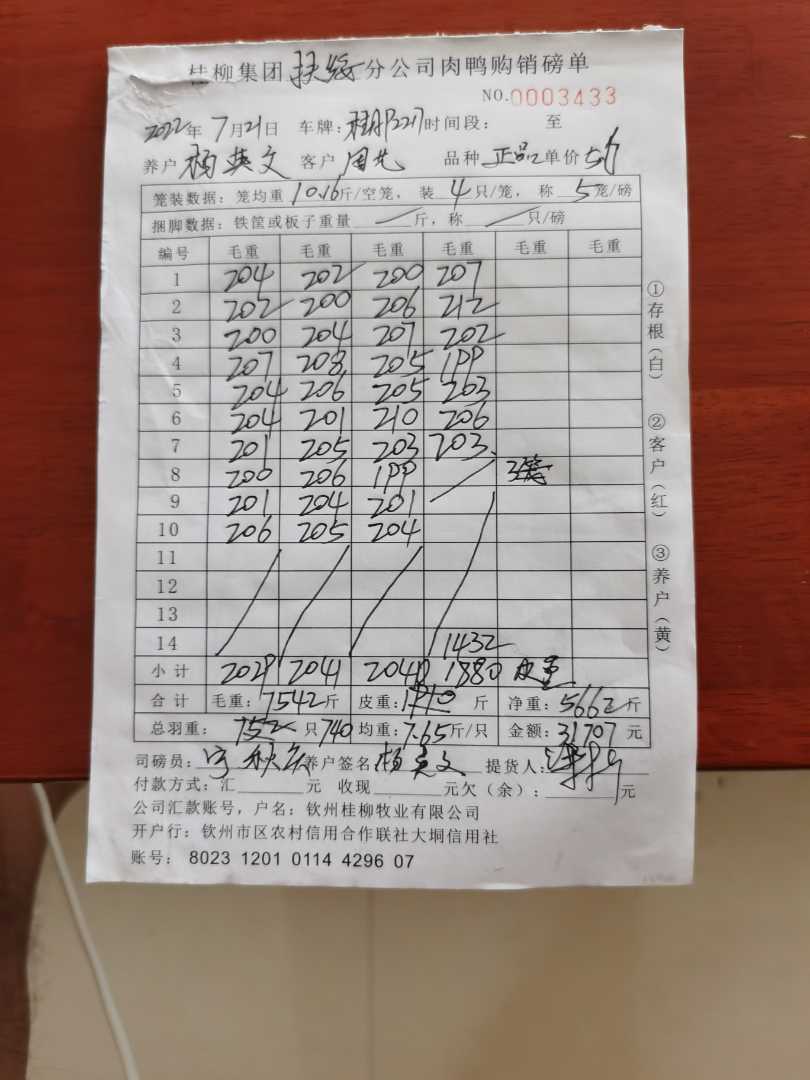 桂柳集团扶绥分公司肉鸭购销磅单
NO.0003433
2022年7月21日 车牌: 时间段: 至
养户 杨英文 客户 周先 品种 正品 单价
笼装数据: 笼均重10.16斤/空笼, 装4只/笼, 称5笼/磅
捆脚数据: 铁筐或板子重量 斤, 称 只/磅
编号 毛重 毛重 毛重 毛重 毛重 毛重
1 204 202 200 207
2 202 200 206 212
3 200 204 207 202
4 207 208 205 199
5 204 206 205 203
6 204 201 210 206
7 201 205 203 203
8 200 206 199
9 201 204 201
10 206 205 204
11
12
13
14 1432
小计 2029 2041 2040 1880 皮重
合计 毛重: 7542斤 皮重: 斤 净重: 5662斤
总羽重: 只740 均重: 7.65斤/只 金额: 31707元
司磅员: 养户签名 杨英文 提货人:
付款方式: 汇 元 收现 元欠(余): 元
公司汇款账号, 户名: 钦州桂柳牧业有限公司
开户行: 钦州市区农村信用合作联社大垌信用社
账号: 8023 1201 0114 4296 07
①存根(白) ②客户(红) ③养户(黄)